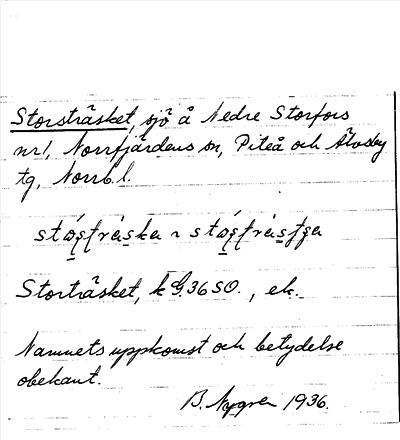 Storsträsket, sjö å Nedre Storfors
nr1, Norrfjärdens sn, Piteå och Älvsby
tg, Norrb. l.
Storträsket, k G. 36 SO., ek.
Namnets uppkomst och betydelse
obekant.
B. Nygren 1936.